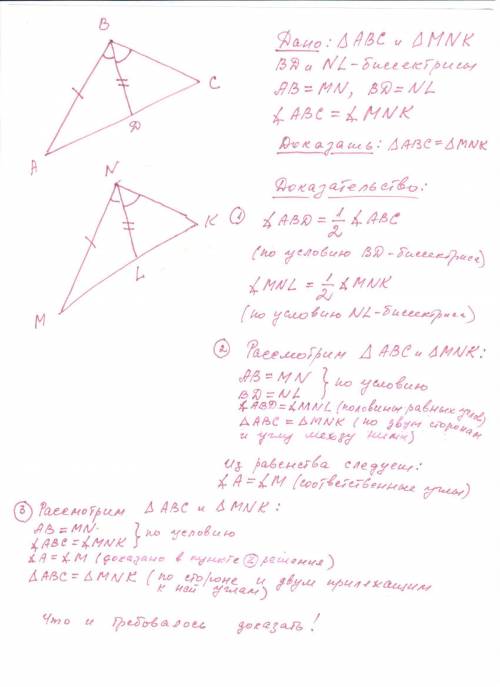 B
C
D
A
N
K
L
M
Дано: △ABC и △MNK
BD и NL-биссектрисы
AB=MN, BD=NL
∡ABC=∡MNK
Доказать: △ABC=△MNK
Доказательство:
① ∡ABD=1/2∡ABC
(по условию BD-биссектриса)
∡MNL=1/2∡MNK
(по условию NL-биссектриса)
② Рассмотрим △ABC и △MNK:
AB=MN
BD=NL } по условию
∡ABD=∡MNL (половины равных углов)
△ABC=△MNK (по двум сторонам
и углу между ними)
Из равенства следует:
∡A=∡M (соответственные углы)
③ Рассмотрим △ABC и △MNK:
AB=MN
∡ABC=∡MNK } по условию
∡A=∡M (доказано в пункте ② решения)
△ABC=△MNK (по стороне и двум прилежащим
к ней углам)
Что и требовалось доказать!